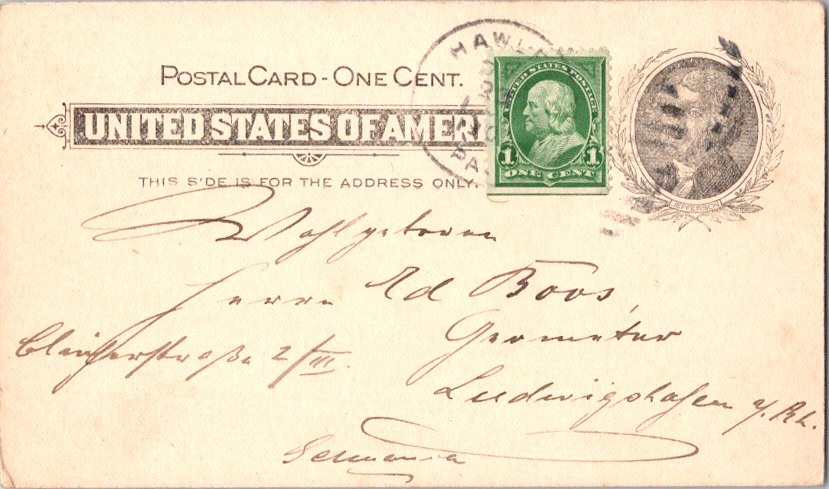 HAWL
PA.
POSTAL CARD - ONE CENT.
UNITED STATES OF AMER
THIS SIDE IS FOR THE ADDRESS ONLY.
UNITED STATES POSTAGE
1 1
ONE CENT
JEFFERSON
Wohlgeboren
Herrn Ed Boos,
Geometer
2/III.
Ludwigshafen a/Rh.
Germania